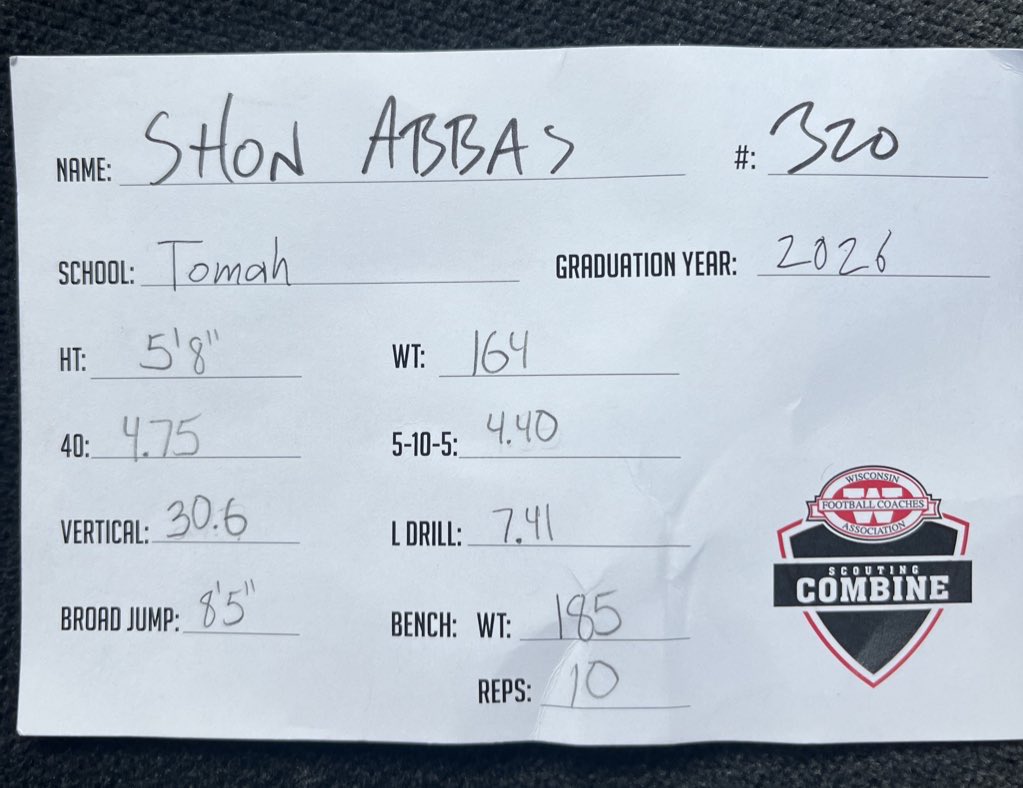 NAME: SHON ABBAS #: 320
SCHOOL: Tomah GRADUATION YEAR: 2026
HT: 5'8" WT: 164
40: 4.75 5-10-5: 4.40
VERTICAL: 30.6 L DRILL: 7.41
BROAD JUMP: 8'5" BENCH: WT: 185
REPS: 10
WISCONSIN
W
FOOTBALL COACHES
ASSOCIATION
SCOUTING
COMBINE